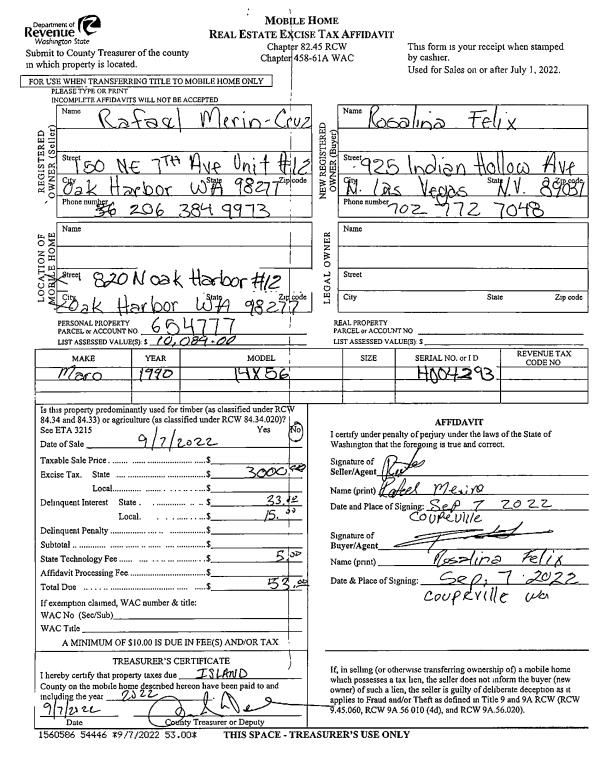 Department of
Revenue
Washington State
Submit to County Treasurer of the county
in which property is located.
MOBILE HOME
REAL ESTATE EXCISE TAX AFFIDAVIT
Chapter 82.45 RCW
Chapter 458-61A WAC
This form is your receipt when stamped
by cashier.
Used for Sales on or after July 1, 2022.
FOR USE WHEN TRANSFERRING TITLE TO MOBILE HOME ONLY
PLEASE TYPE OR PRINT
INCOMPLETE AFFIDAVITS WILL NOT BE ACCEPTED
REGISTERED OWNER (Seller)
Name Rafael Merin-Cruz
Street 150 NE 7TH Ave Unit #12
City Oak Harbor State WA Zip code 98277
Phone number 206 384 9973
NEW REGISTERED OWNER (Buyer)
Name Rosalina Felix
Street 925 Indian Hollow Ave
City N. Las Vegas State N.V. Zip code 89031
Phone number 702 772 7048
LOCATION OF MOBILE HOME
Name
Street 820 N oak Harbor #12
City Oak Harbor State WA Zip code 98277
LEGAL OWNER
Name
Street
City State Zip code
PERSONAL PROPERTY
PARCEL or ACCOUNT NO 654777
LIST ASSESSED VALUE(S): $ 10,089.00
REAL PROPERTY
PARCEL or ACCOUNT NO
LIST ASSESSED VALUE(S): $
MAKE YEAR MODEL SIZE SERIAL NO. or I D REVENUE TAX CODE NO
1990 14X56 H004293
Is this property predominantly used for timber (as classified under RCW
84.34 and 84.33) or agriculture (as classified under RCW 84.34.020)?
See ETA 3215 Yes No
Date of Sale 9/7/2022
Taxable Sale Price $
Excise Tax. State $ 3000.00
Local $
Delinquent Interest State $ 33.00
Local. $ 15.00
Delinquent Penalty $
Subtotal $
State Technology Fee $ 5.00
Affidavit Processing Fee $
Total Due $ 53.00
If exemption claimed, WAC number & title:
WAC No (Sec/Sub)
WAC Title
A MINIMUM OF $10.00 IS DUE IN FEE(S) AND/OR TAX
AFFIDAVIT
I certify under penalty of perjury under the laws of the State of
Washington that the foregoing is true and correct.
Signature of
Seller/Agent
Name (print) Rafael Merino
Date and Place of Signing: Sep 7 2022
COUPEVILLE
Signature of
Buyer/Agent
Name (print) Rosalina Felix
Date & Place of Signing: Sep, 7 2022
COUPEVILLE wa
TREASURER'S CERTIFICATE
I hereby certify that property taxes due ISLAND
County on the mobile home described hereon have been paid to and
including the year 2022
9/7/2022
Date County Treasurer or Deputy
If, in selling (or otherwise transferring ownership of) a mobile home
which possesses a tax lien, the seller does not inform the buyer (new
owner) of such a lien, the seller is guilty of deliberate deception as it
applies to Fraud and/or Theft as defined in Title 9 and 9A RCW (RCW
9.45.060, RCW 9A 56 010 (4d), and RCW 9A.56.020).
1560586 54446 *9/7/2022 53.00* THIS SPACE - TREASURER'S USE ONLY